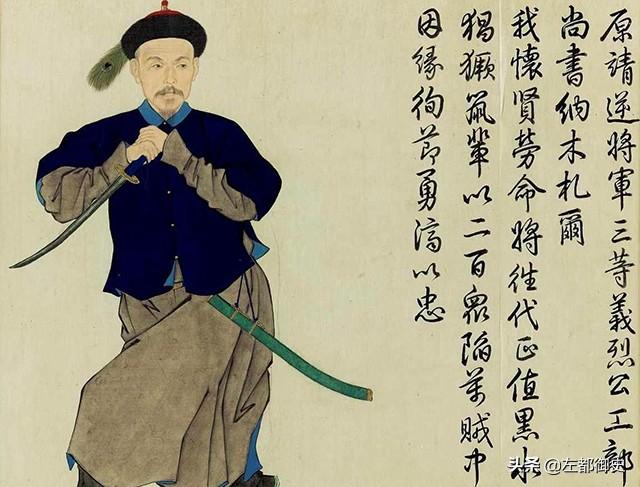 原靖逆將軍三等義烈公工部
尚書納木札爾
我懷賢勞命將往代正值黑水
猖獗鼠輩以二百衆陷萬賊中
因緣徇節勇濟以忠
头条 @左都御史